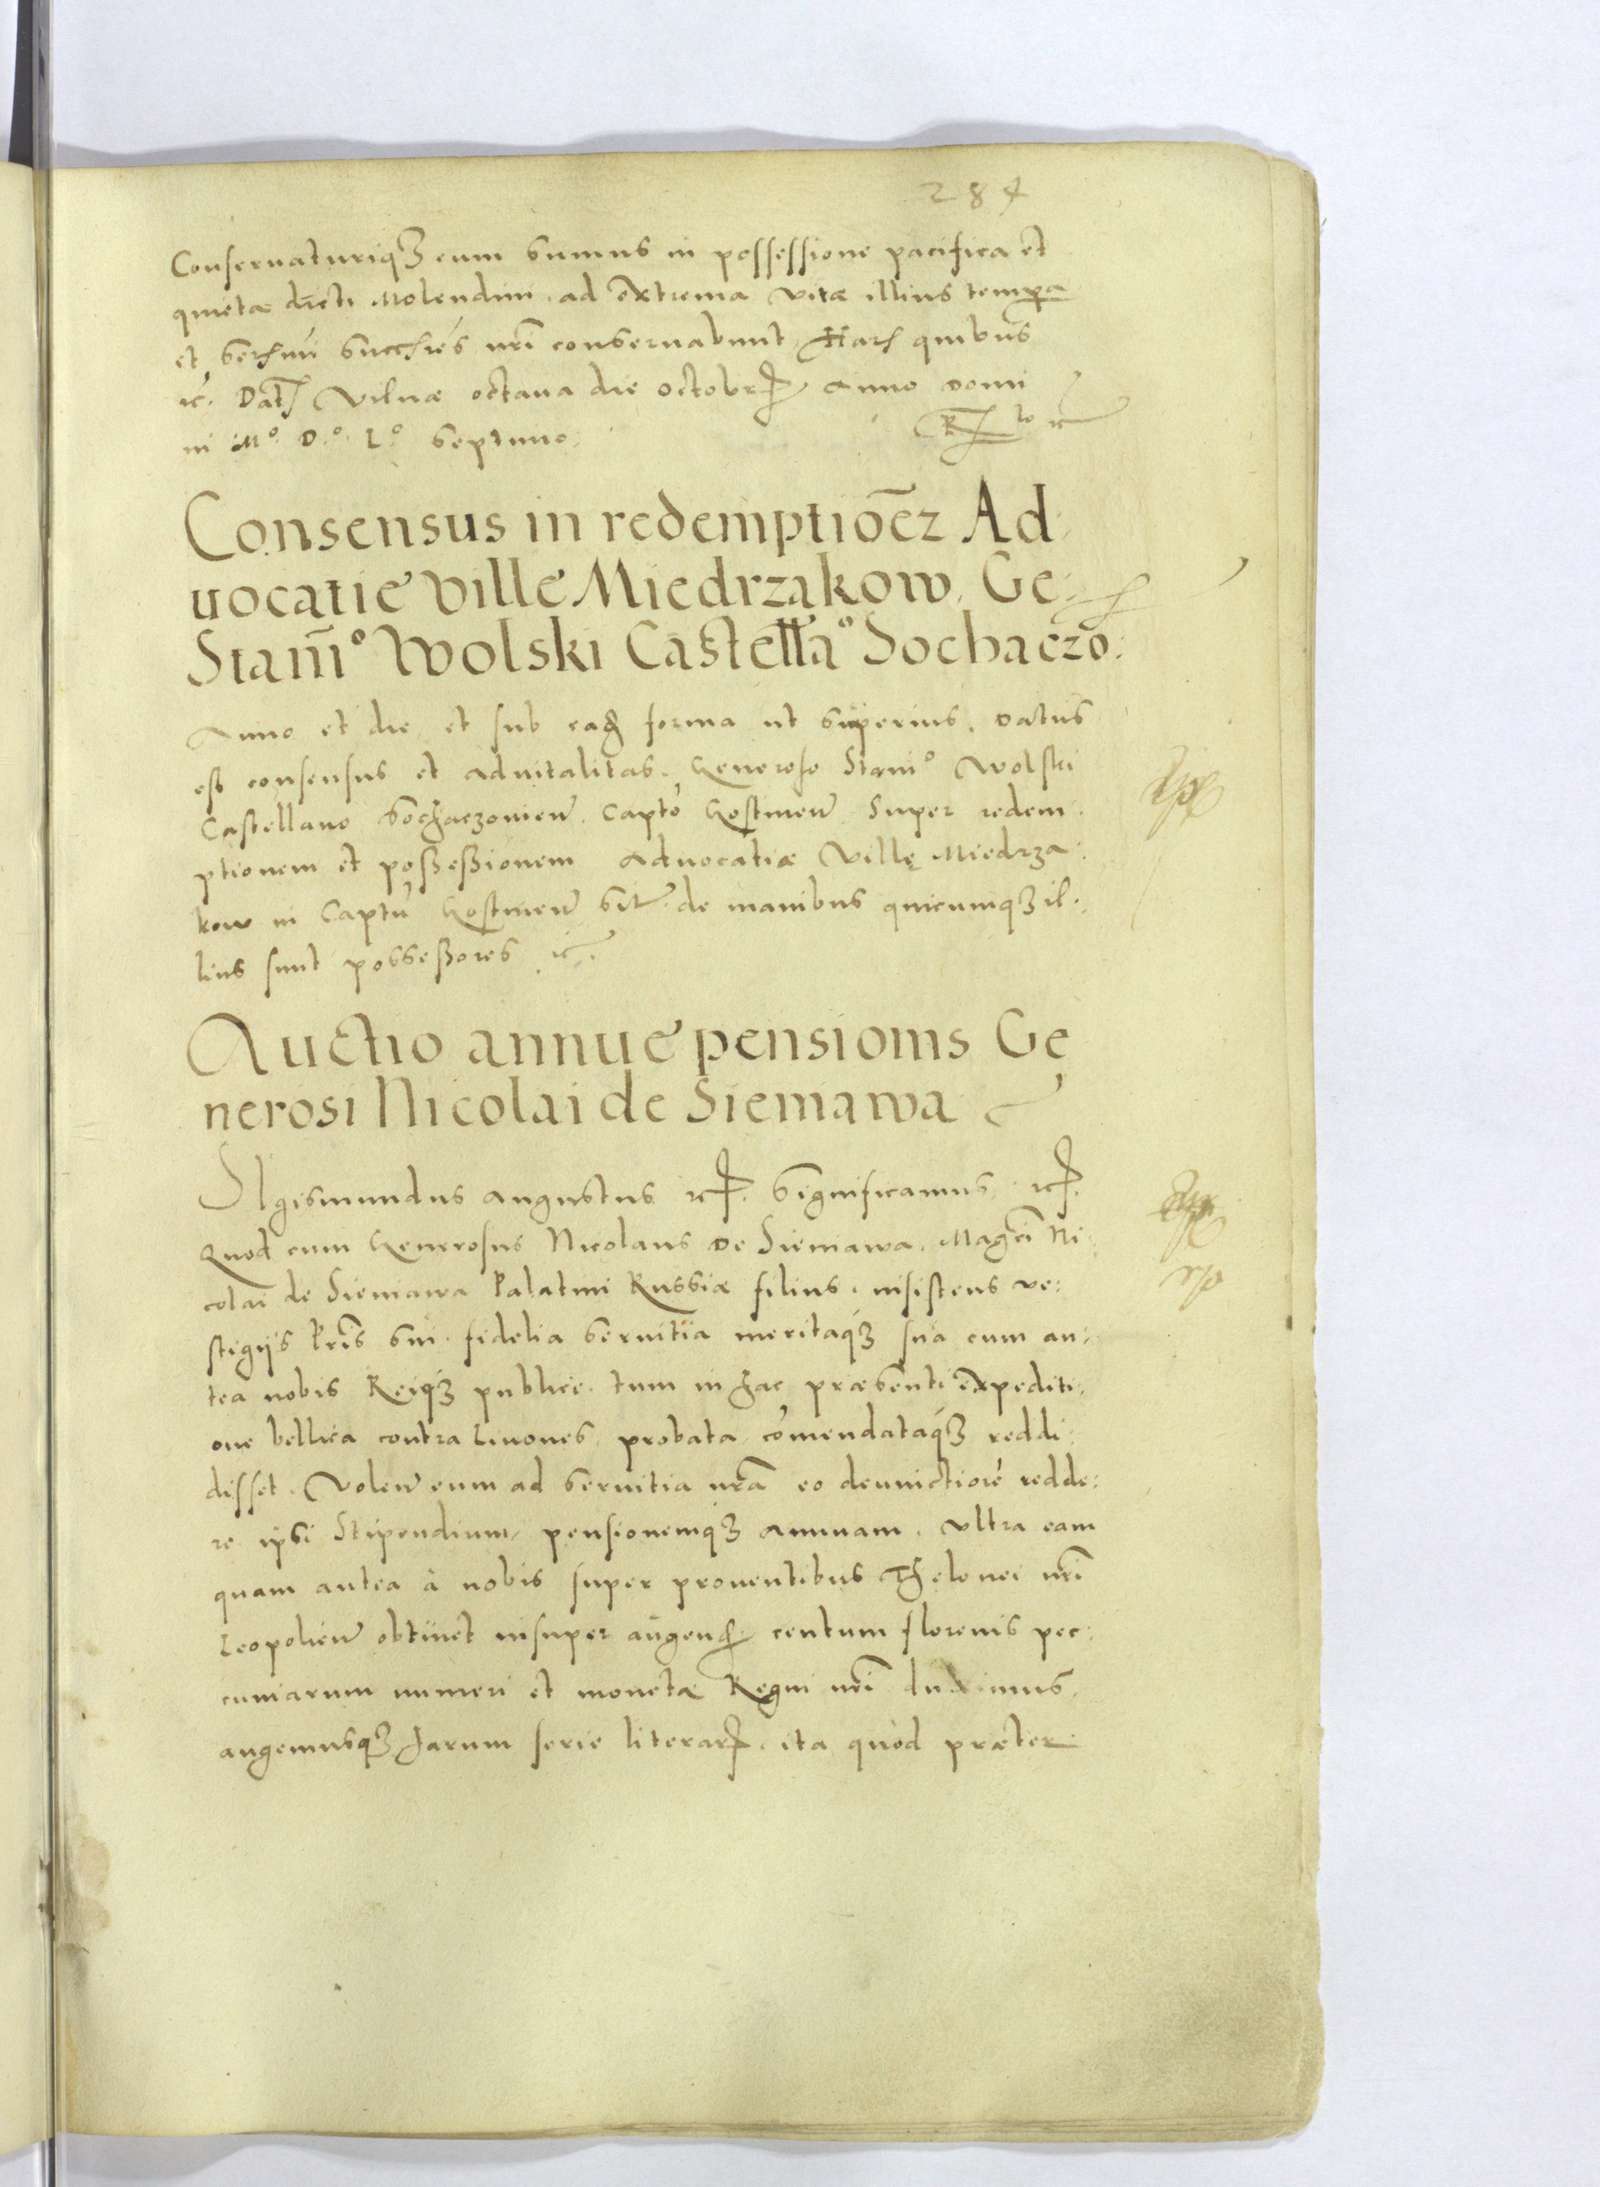 284
Conseruaturiqȝ eum sumus in possessione pacifica et
quieta dicti Molendini ad extrema vitæ illius tempora
et Sermi succres nri conseruabunt Harꝝ quibus
ꝛc. Datꝝ Vilnæ octaua die Octobrꝭ Anno Domi
ni Mº Dº Lº Septimo.
Consensus in redemptiōēz Ad
uocatie ville Miedrzakow. Ge.
Stanīº Wolski Castellāº Sochaczo:
Anno et die et sub eadꝫ forma ut superius. Datus
est consensus et aduitalitas Generoso Stanīº Wolski
Castellano Sochaczouieñ. Captō Gostineñ Super redem
ptionem et poßeßionem Aduocatiæ Villę Miedrza:
kow in Captū Gostineñ sitę de manibus quicumqȝ il:
lius sunt posseßores ꝛc.
Auctio annue pensionis Ge
nerosi Nicolai de Sieniawa
SIgismundus augustus ꝛcꝭ. Significamus ꝛcꝭ.
Quod cum Generosus Nicolaus de Sieniawa. Magcī Ni
colai de Sieniawa Palatini Russiæ filius. insistens ve:
stigijs Pris sui. fidelia seruitia meritaqȝ sua cum an:
tea nobis Reiqȝ publice. tum in hac præsenti expediti:
one bellica contra Liuones. probata cōmendataqȝ reddi:
disset. Voleñ eum ad seruitia nrā eo deuinctiorē redde:
re ipsi Stipendium, pensionemqȝ Annuam. Vltra eam
quam antea à nobis super prouentibus Thelonei nrī
Leopolieñ obtinet insuper augendꝭ centum florenis pec:
cuniarum numeri et monetæ Regni nrī duximus.
augemusqȝ harum serie literarꝭ. ita quod præter